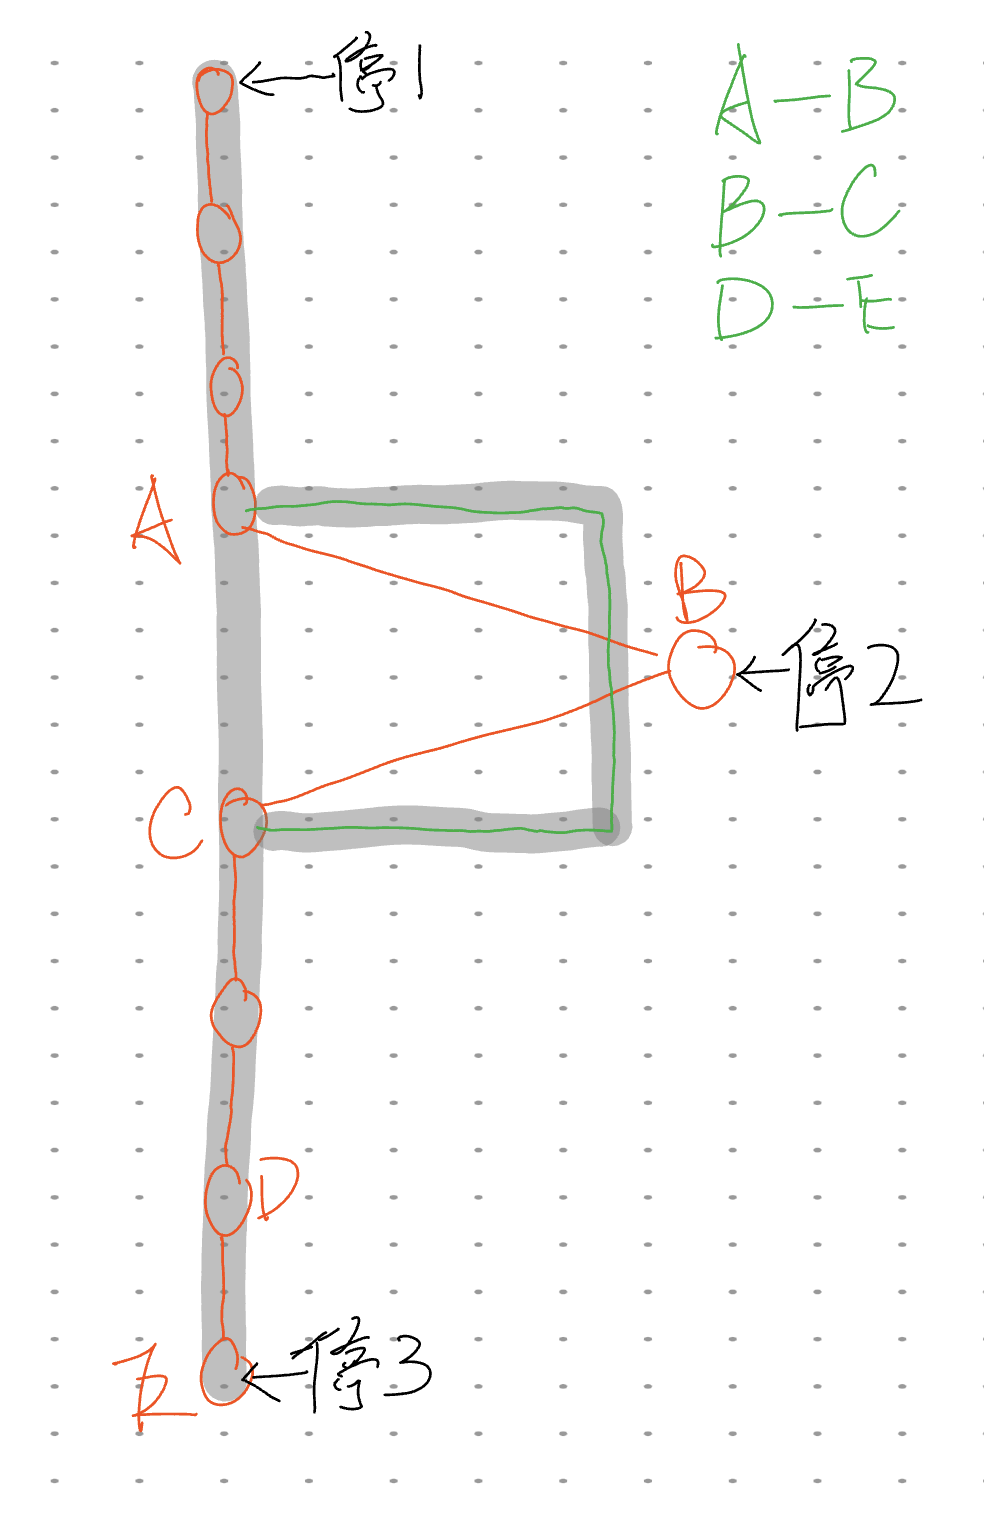 停1
A—B
B—C
D—E
A
B
停2
C
D
E
停3